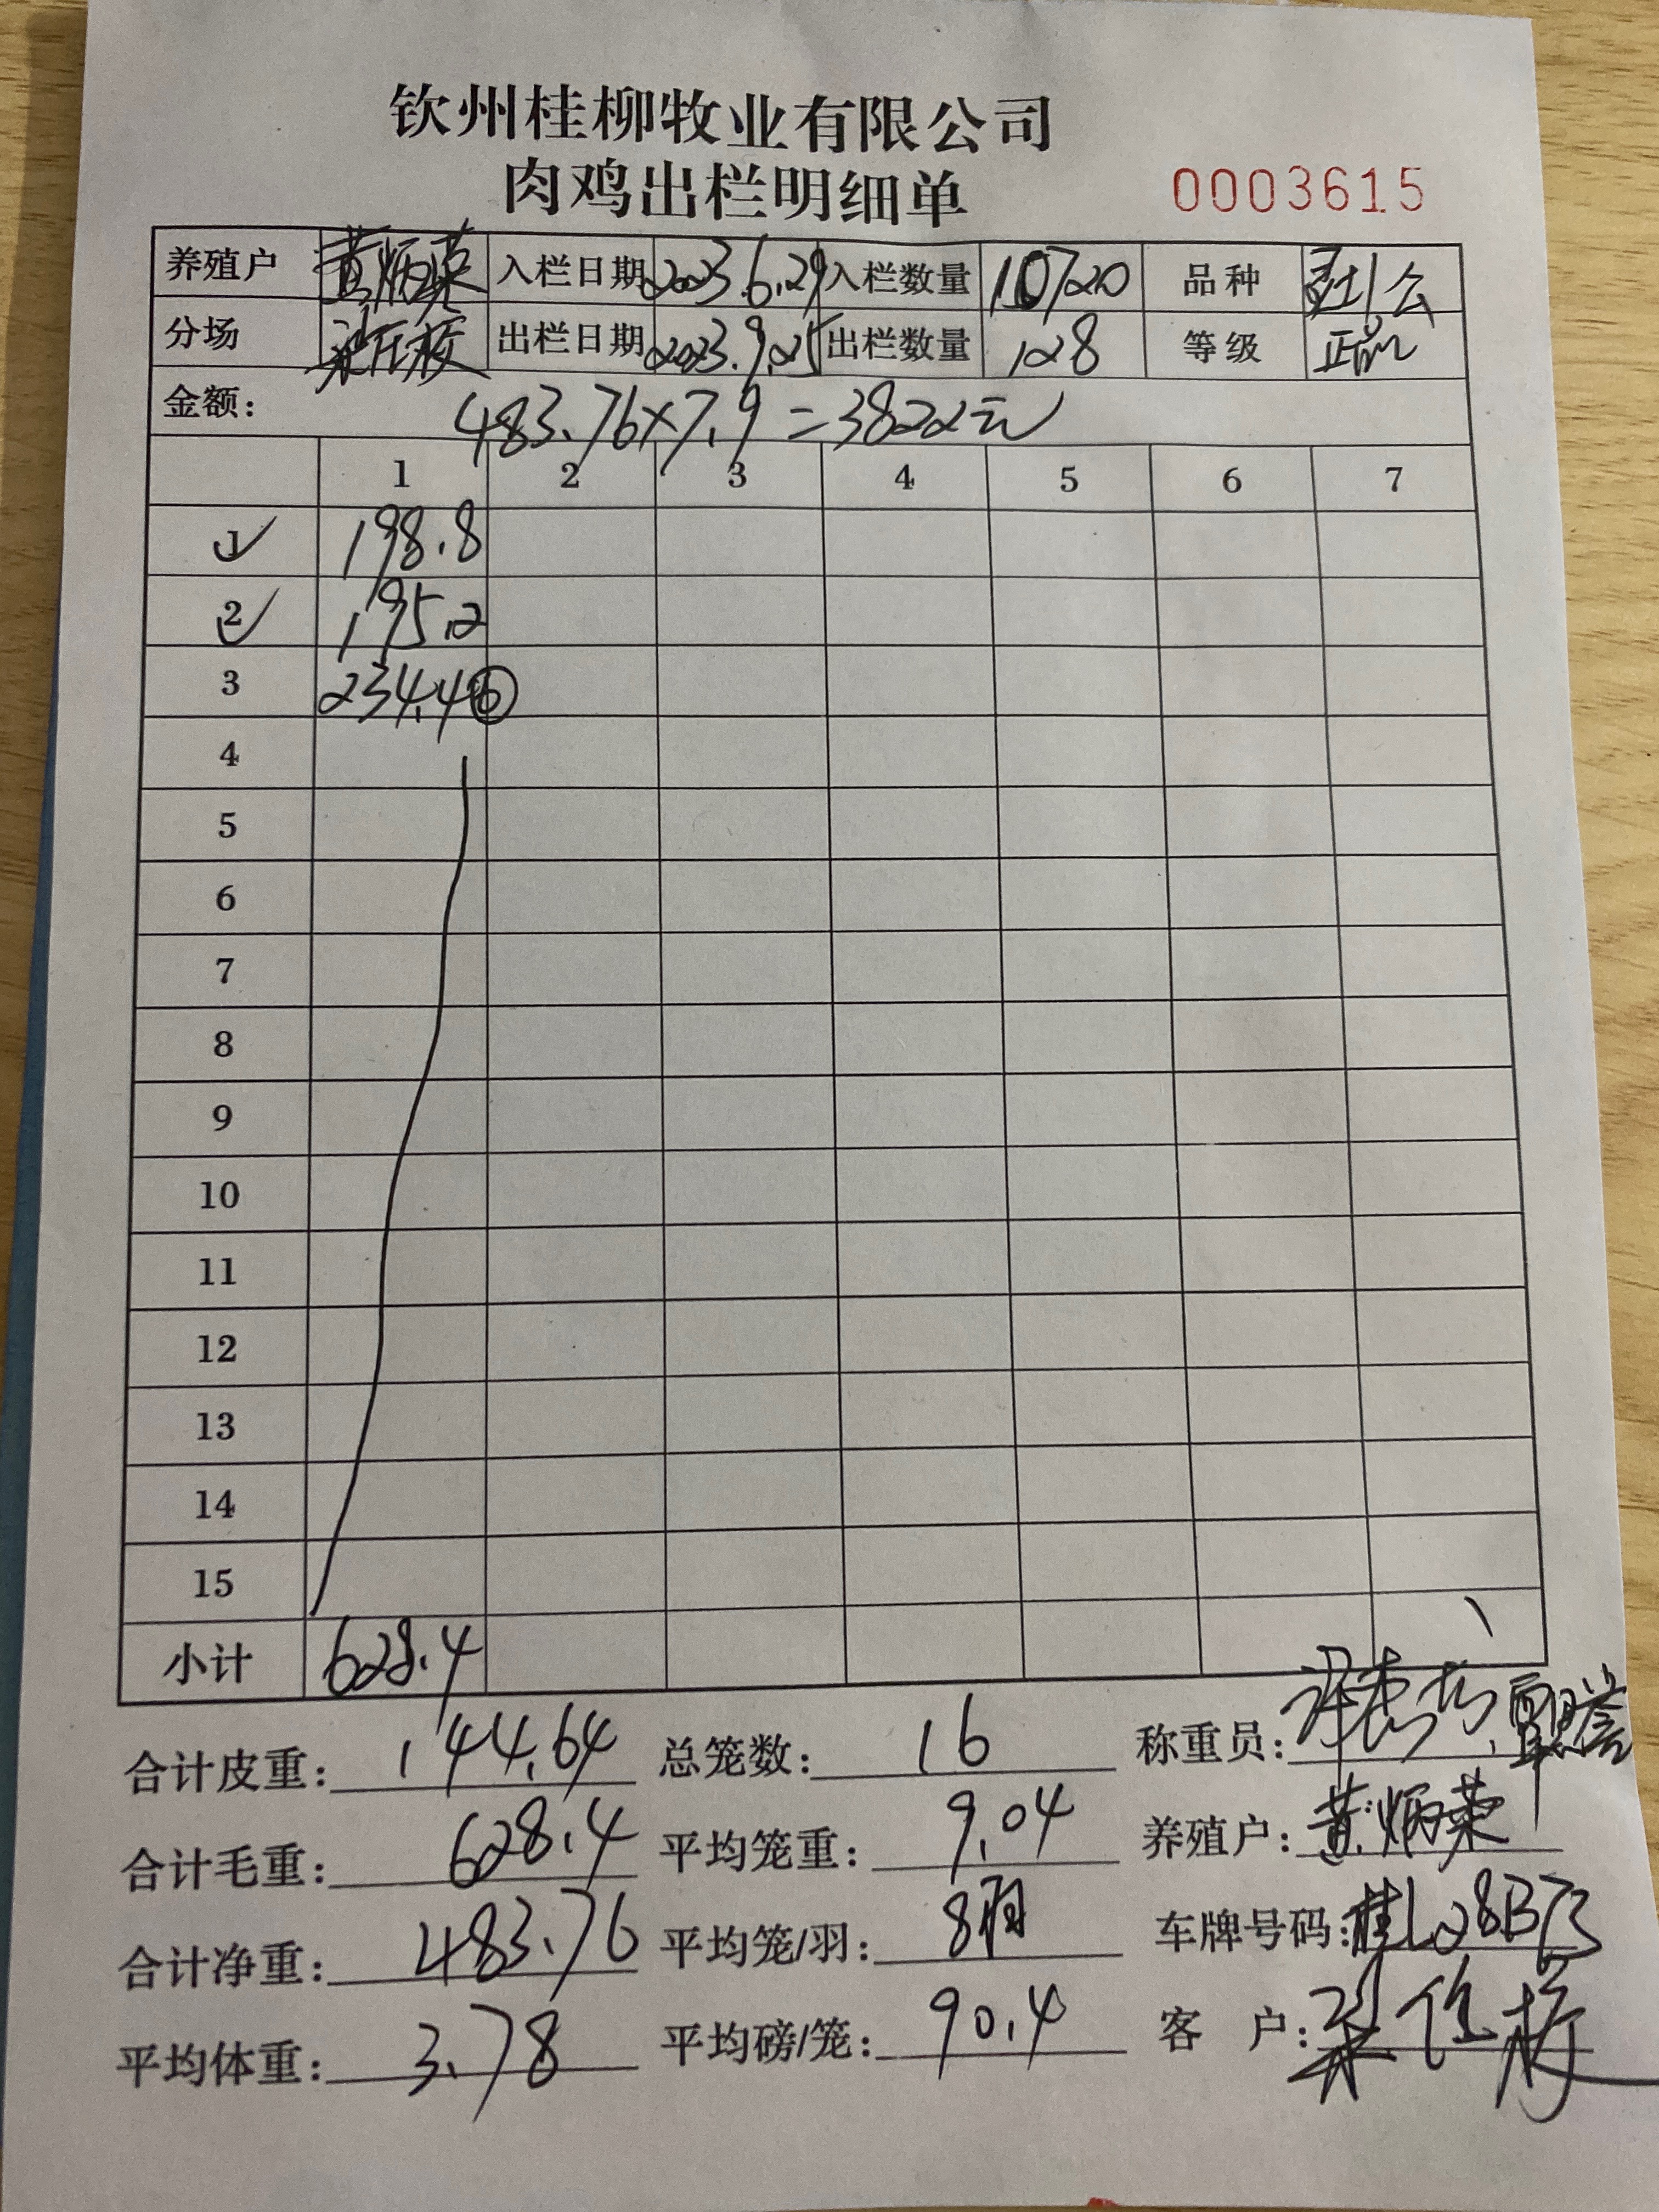 钦州桂柳牧业有限公司
肉鸡出栏明细单 0003615
养殖户 黄炳荣 入栏日期 2023.6.29 入栏数量 10720 品种
分场 出栏日期 2023.9.25 出栏数量 128 等级 正品
金额: 483.76×7.9=3822元
1 2 3 4 5 6 7
1 198.8
2 195.2
3 234.4⑥
4
5
6
7
8
9
10
11
12
13
14
15
小计 628.4
合计皮重: 144.64 总笼数: 16 称重员:
合计毛重: 628.4 平均笼重: 9.04 养殖户: 黄炳荣
合计净重: 483.76 平均笼/羽: 8羽 车牌号码:
平均体重: 3.78 平均磅/笼: 90.4 客 户: